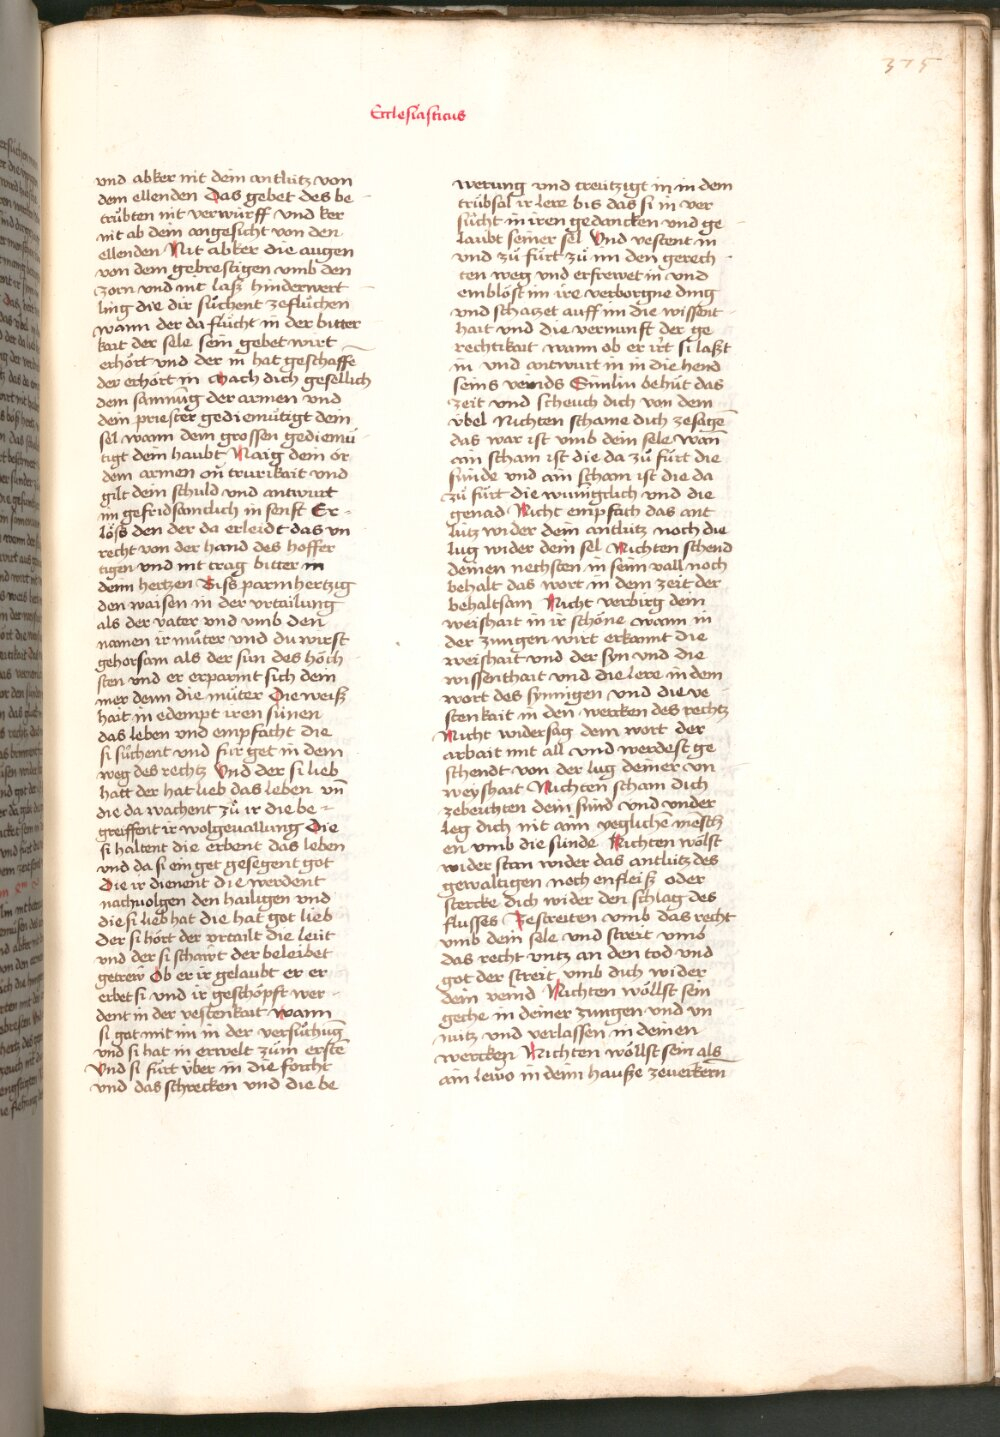 375
Ecclesiasticus
vnd abker nit dein antlütz von
dem ellenden Das gebet des be
trübten nit verwürff vnd ker
nit ab dein angesicht von den
ellenden Nit abker die augen
von dem gebrestigen vmb den
zorn vnd nit laß hinderwert
ling die dir süchent zeflüchen
wann der da flücht in der bitter
kait der sele sein gebet wirt
erhört vnd der in hat geschaffe
der erhört in Mach dich gesellich
dem samnūg der armen vnd
dein priester gediemütigt dein
sel wann dem grossen gediemü
tigt dein haubt Naig dein or
dem armen on trurikait vnd
gilt dein schuld vnd antwurt
im gefridsamlich in senft Er-
löß den der da erleidt das vn
recht von der hand des hoffer
tigen vnd nit trag bitter in
deim hertzen Biss parmhertzig
den waisen in der vrtailung
als der vater vnd vmb den
namen ir müter vnd du wirst
gehorsam als der sun des höch
sten vnd er erparmt sich dein
mer denn die müter Die weiß
hait in edempt iren sünen
das leben vnd empfacht die
si süchent vnd für get in dem
weg des rechtz Vnd der si lieb
hatt der hat lieb das leben vn̄
die da wachent zu ir die be-
greiffent ir wolgeuallung Die
si haltent die erbent das leben
vnd da si ein get gesegent got
Die ir dienent die werdent
nachuolgen den hailigen vnd
die si lieb hat die hat got lieb
der si hört der vrtailt die leüt
vnd der si schawt der beleibet
getrew Ob er ir gelaubt er er
erbet si vnd ir geschöpft wer-
dent in der vestenkait wann
si gat mit im in der versüchūg
vnd si hat in erwelt zum erstē
Vnd si fürt vber in die forcht
vnd das schrecken vnd die be
werung vnd creützigt in in dem
trübsal ir lere bis das si in ver
sücht in iren gedancken vnd ge
laubt seiner sel Vnd vestent in
vnd zü fürt zü im den gerech-
ten weg vnd erfrewet in vnd
emblöst im ire verborgne ding
vnd schatzet auff im die wissent
hait vnd die vernunft der ge
rechtikait wann ob er irt si laßt
in vnd antwurt in in die hend
seins veinds Sunlin behüt das
zeit vnd scheuch dich von dem
vbel Nichten schame dich zesagē
das war ist vmb dein sele wañ
ain scham ist die da zü fürt die
sünde vnd ain scham ist die da
zü fürt die wunigklich vnd die
genad Nicht empfach das ant
lütz wider dein antlütz noch die
lug wider dein sel Nichten schend
deinen nechsten in seim vall noch
behalt das wort in dem zeit der
behaltsam Nicht verbirg dein
weishait in ir schöne wann in
der zungen wirt erkannt die
weishait vnd der syn vnd die
wissenthait vnd die lere in dem
wort des synnigen vnd die ve
stenkait in den wercken des rechtz
Nicht widersag dem wort der
arbait mit all vnd werdest ge
schendt von der lug deiner vn
weyshait Nichten scham dich
zebeichten dein sünd vnd vnder
leg dich nit aim yeglichē mēsch
en vmb die sünde Nichten wölst
wider stan wider das antlütz des
gewaltigen noch enfleiß oder
stercke dich wider den schlag des
flusses Zestreiten vmb das recht
vmb dein sele vnd streit vmb
das recht vntz an den tod vnd
got der streit vmb dich wider
dein veind Nichten wöllst sein
geche in deiner zungen vnd vn
nütz vnd verlassen in deinen
wercken Nichten wöllst sein als
ain lewo in deim hauße zeuerkern